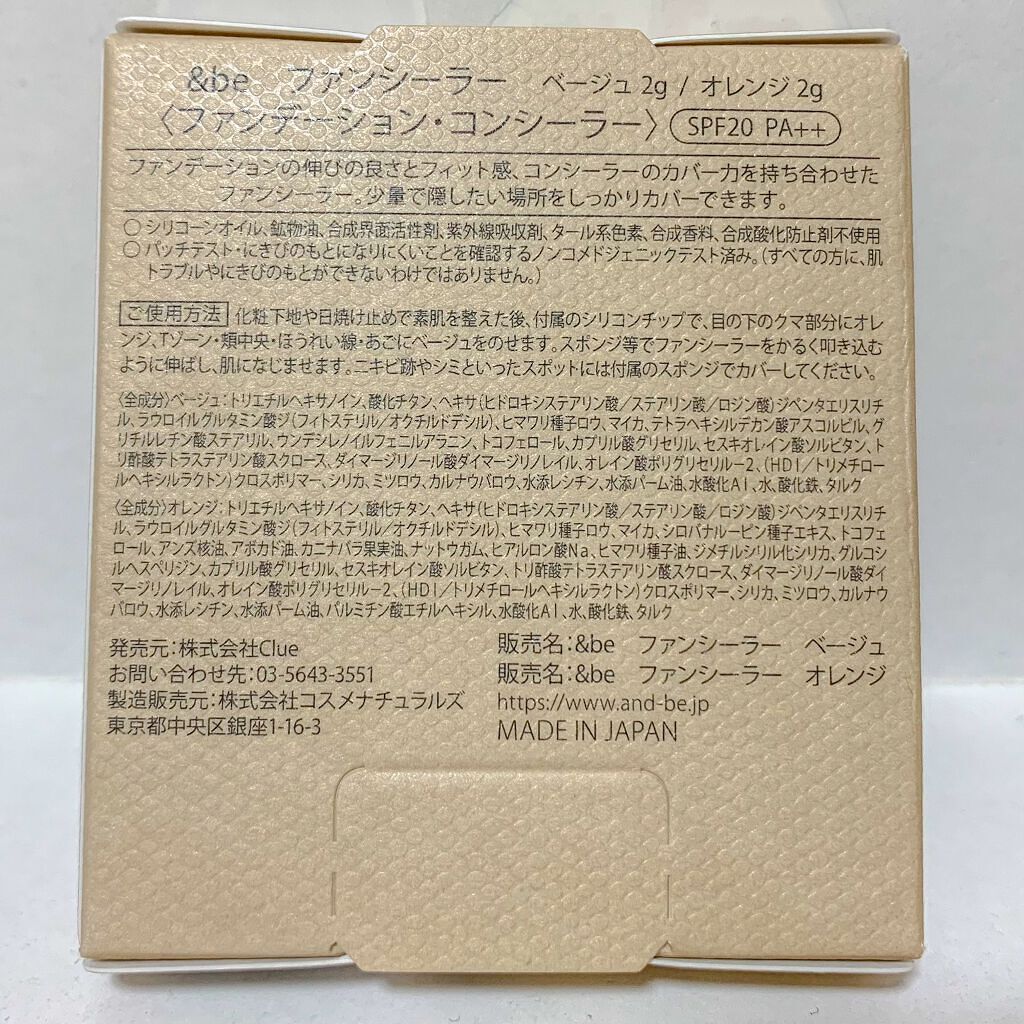 &be ファンシーラー ベージュ 2g / オレンジ 2g
〈ファンデーション・コンシーラー〉 SPF20 PA++
ファンデーションの伸びの良さとフィット感、コンシーラーのカバー力を持ち合わせた
ファンシーラー。少量で隠したい場所をしっかりカバーできます。
○ シリコーンオイル、鉱物油、合成界面活性剤、紫外線吸収剤、タール系色素、合成香料、合成酸化防止剤不使用
○ パッチテスト・にきびのもとになりにくいことを確認するノンコメドジェニックテスト済み。(すべての方に、肌
トラブルやにきびのもとができないわけではありません。)
ご使用方法 化粧下地や日焼け止めで素肌を整えた後、付属のシリコンチップで、目の下のクマ部分にオレ
ンジ、Tゾーン・頬中央・ほうれい線・あごにベージュをのせます。スポンジ等でファンシーラーをかるく叩き込む
ように伸ばし、肌になじませます。ニキビ跡やシミといったスポットには付属のスポンジでカバーしてください。
〈全成分〉ベージュ：トリエチルヘキサノイン、酸化チタン、ヘキサ(ヒドロキシステアリン酸／ステアリン酸／ロジン酸)ジペンタエリスリチ
ル、ラウロイルグルタミン酸ジ(フィトステリル／オクチルドデシル)、ヒマワリ種子ロウ、マイカ、テトラヘキシルデカン酸アスコルビル、グ
リチルレチン酸ステアリル、ウンデシレノイルフェニルアラニン、トコフェロール、カプリル酸グリセリル、セスキオレイン酸ソルビタン、ト
リ酢酸テトラステアリン酸スクロース、ダイマージリノール酸ダイマージリノレイル、オレイン酸ポリグリセリル－2、(HDI／トリメチロー
ルヘキシルラクトン)クロスポリマー、シリカ、ミツロウ、カルナウバロウ、水添レシチン、水添パーム油、水酸化Al、水、酸化鉄、タルク
〈全成分〉オレンジ：トリエチルヘキサノイン、酸化チタン、ヘキサ(ヒドロキシステアリン酸／ステアリン酸／ロジン酸)ジペンタエリスリチ
ル、ラウロイルグルタミン酸ジ(フィトステリル／オクチルドデシル)、ヒマワリ種子ロウ、マイカ、シロバナルーピン種子エキス、トコフェ
ロール、アンズ核油、アボカド油、カニナバラ果実油、ナットウガム、ヒアルロン酸Na、ヒマワリ種子油、ジメチルシリル化シリカ、グルコシ
ルヘスペリジン、カプリル酸グリセリル、セスキオレイン酸ソルビタン、トリ酢酸テトラステアリン酸スクロース、ダイマージリノール酸ダイ
マージリノレイル、オレイン酸ポリグリセリル－2、(HDI／トリメチロールヘキシルラクトン)クロスポリマー、シリカ、ミツロウ、カルナウ
バロウ、水添レシチン、水添パーム油、パルミチン酸エチルヘキシル、水酸化Al、水、酸化鉄、タルク
発売元：株式会社Clue
お問い合わせ先：03-5643-3551
製造販売元：株式会社コスメナチュラルズ
東京都中央区銀座1-16-3
販売名：&be ファンシーラー ベージュ
販売名：&be ファンシーラー オレンジ
https://www.and-be.jp
MADE IN JAPAN